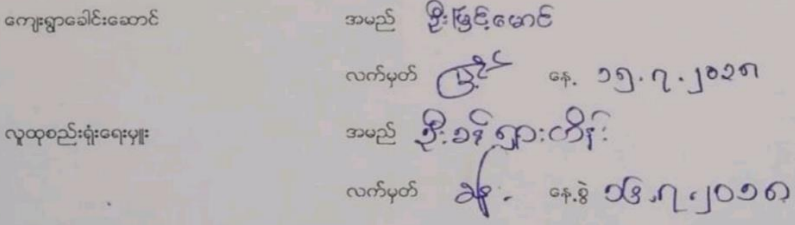 ကျေးရွာခေါင်းဆောင် အမည် ဦးမြင့်မောင်
လက်မှတ် မြင့် နေ့ ၁၅.၇.၂၀၁၈
လူထုစည်းရုံးရေးမှူး အမည် ဦးခန်ရှားတိန်း
လက်မှတ် ခန် နေ့စွဲ ၁၆.၇.၂၀၁၈